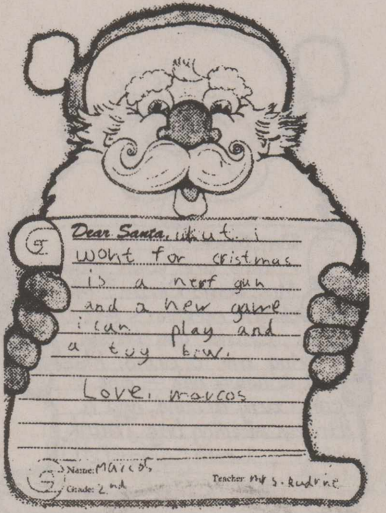 Dear Santa, whut i
wont for cristmas
is a nerf gun
and a new game
i can play and
a toy bow.
Love, marcos
Name: Marcos
Teacher: Mrs. Rudrine
Grade: 2nd